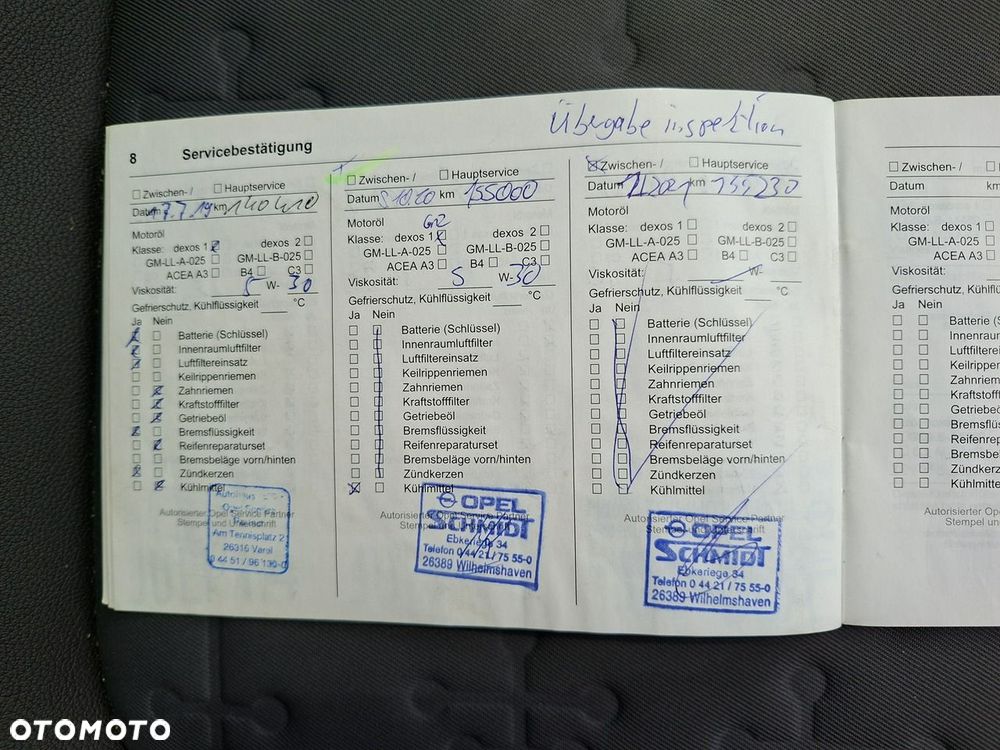 Übergabe inspektion
8 Servicebestätigung
Zwischen-/ Hauptservice
Datum 17.7.19 km 140410
Motoröl
Klasse: dexos 1 dexos 2
GM-LL-A-025 GM-LL-B-025
ACEA A3 B4 C3
Viskosität: 5 W- 30
Gefrierschutz, Kühlflüssigkeit °C
Ja Nein
Batterie (Schlüssel)
Innenraumluftfilter
Luftfiltereinsatz
Keilrippenriemen
Zahnriemen
Kraftstofffilter
Getriebeöl
Bremsflüssigkeit
Reifenreparaturset
Bremsbeläge vorn/hinten
Zündkerzen
Kühlmittel
Autorisierter Opel Service Partner
Stempel und Unterschrift
Autohaus
Am Tennisplatz 2
26316 Varel
0 44 51 / 96
Zwischen-/ Hauptservice
Datum 8.10.20 km 155000
Motoröl
Gn2
Klasse: dexos 1 dexos 2
GM-LL-A-025 GM-LL-B-025
ACEA A3 B4 C3
Viskosität: 5 W- 30
Gefrierschutz, Kühlflüssigkeit °C
Ja Nein
Batterie (Schlüssel)
Innenraumluftfilter
Luftfiltereinsatz
Keilrippenriemen
Zahnriemen
Kraftstofffilter
Getriebeöl
Bremsflüssigkeit
Reifenreparaturset
Bremsbeläge vorn/hinten
Zündkerzen
Kühlmittel
Autorisierter Opel Service Partner
OPEL
SCHMIDT
Ebkeriege 34
Telefon 0 44 21 / 75 55-0
26389 Wilhelmshaven
Zwischen-/ Hauptservice
Datum km 155230
Motoröl
Klasse: dexos 1 dexos 2
GM-LL-A-025 GM-LL-B-025
ACEA A3 B4 C3
Viskosität: W-
Gefrierschutz, Kühlflüssigkeit °C
Ja Nein
Batterie (Schlüssel)
Innenraumluftfilter
Luftfiltereinsatz
Keilrippenriemen
Zahnriemen
Kraftstofffilter
Getriebeöl
Bremsflüssigkeit
Reifenreparaturset
Bremsbeläge vorn/hinten
Zündkerzen
Kühlmittel
Autorisierter Opel Service Partner
OPEL
SCHMIDT
Ebkeriege 34
Telefon 0 44 21 / 75 55-0
26389 Wilhelmshaven
Zwischen-/ H
Datum km
Motoröl
Klasse: dexos 1
GM-LL-A-025
ACEA A3
Viskosität:
Gefrierschutz, Kühlflüs
Ja Nein
Batterie (S
Innenraumlu
Luftfilterein
Keilrippenri
Zahnriemen
Kraftstofffil
Getriebeöl
Bremsflüs
Reifenrepar
Bremsbeläg
Zündkerzen
Kühlmittel
Autorisierter Opel
Stempel und
OTOMOTO